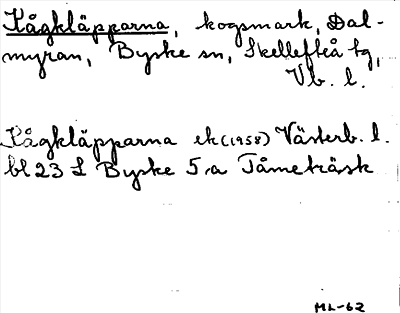 Kågkläpparna, kogsmark, Dal-
myran, Byske sn, Skellefteå tg,
Vb. l.
Kågkläpparna ek (1958) Västerb. l.
bl 23 L Byske 5a Tåmeträsk
ML-62